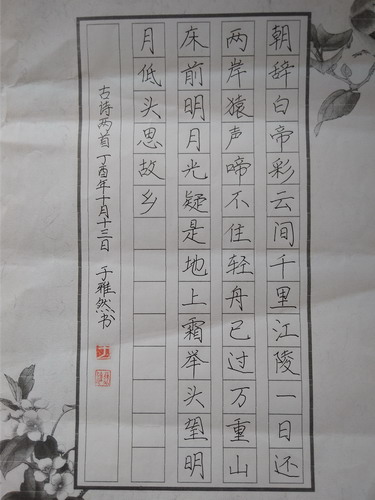 朝辞白帝彩云间千里江陵一日还
两岸猿声啼不住轻舟已过万重山
床前明月光疑是地上霜举头望明
月低头思故乡
古诗两首丁酉年十月十三日 于雅然书